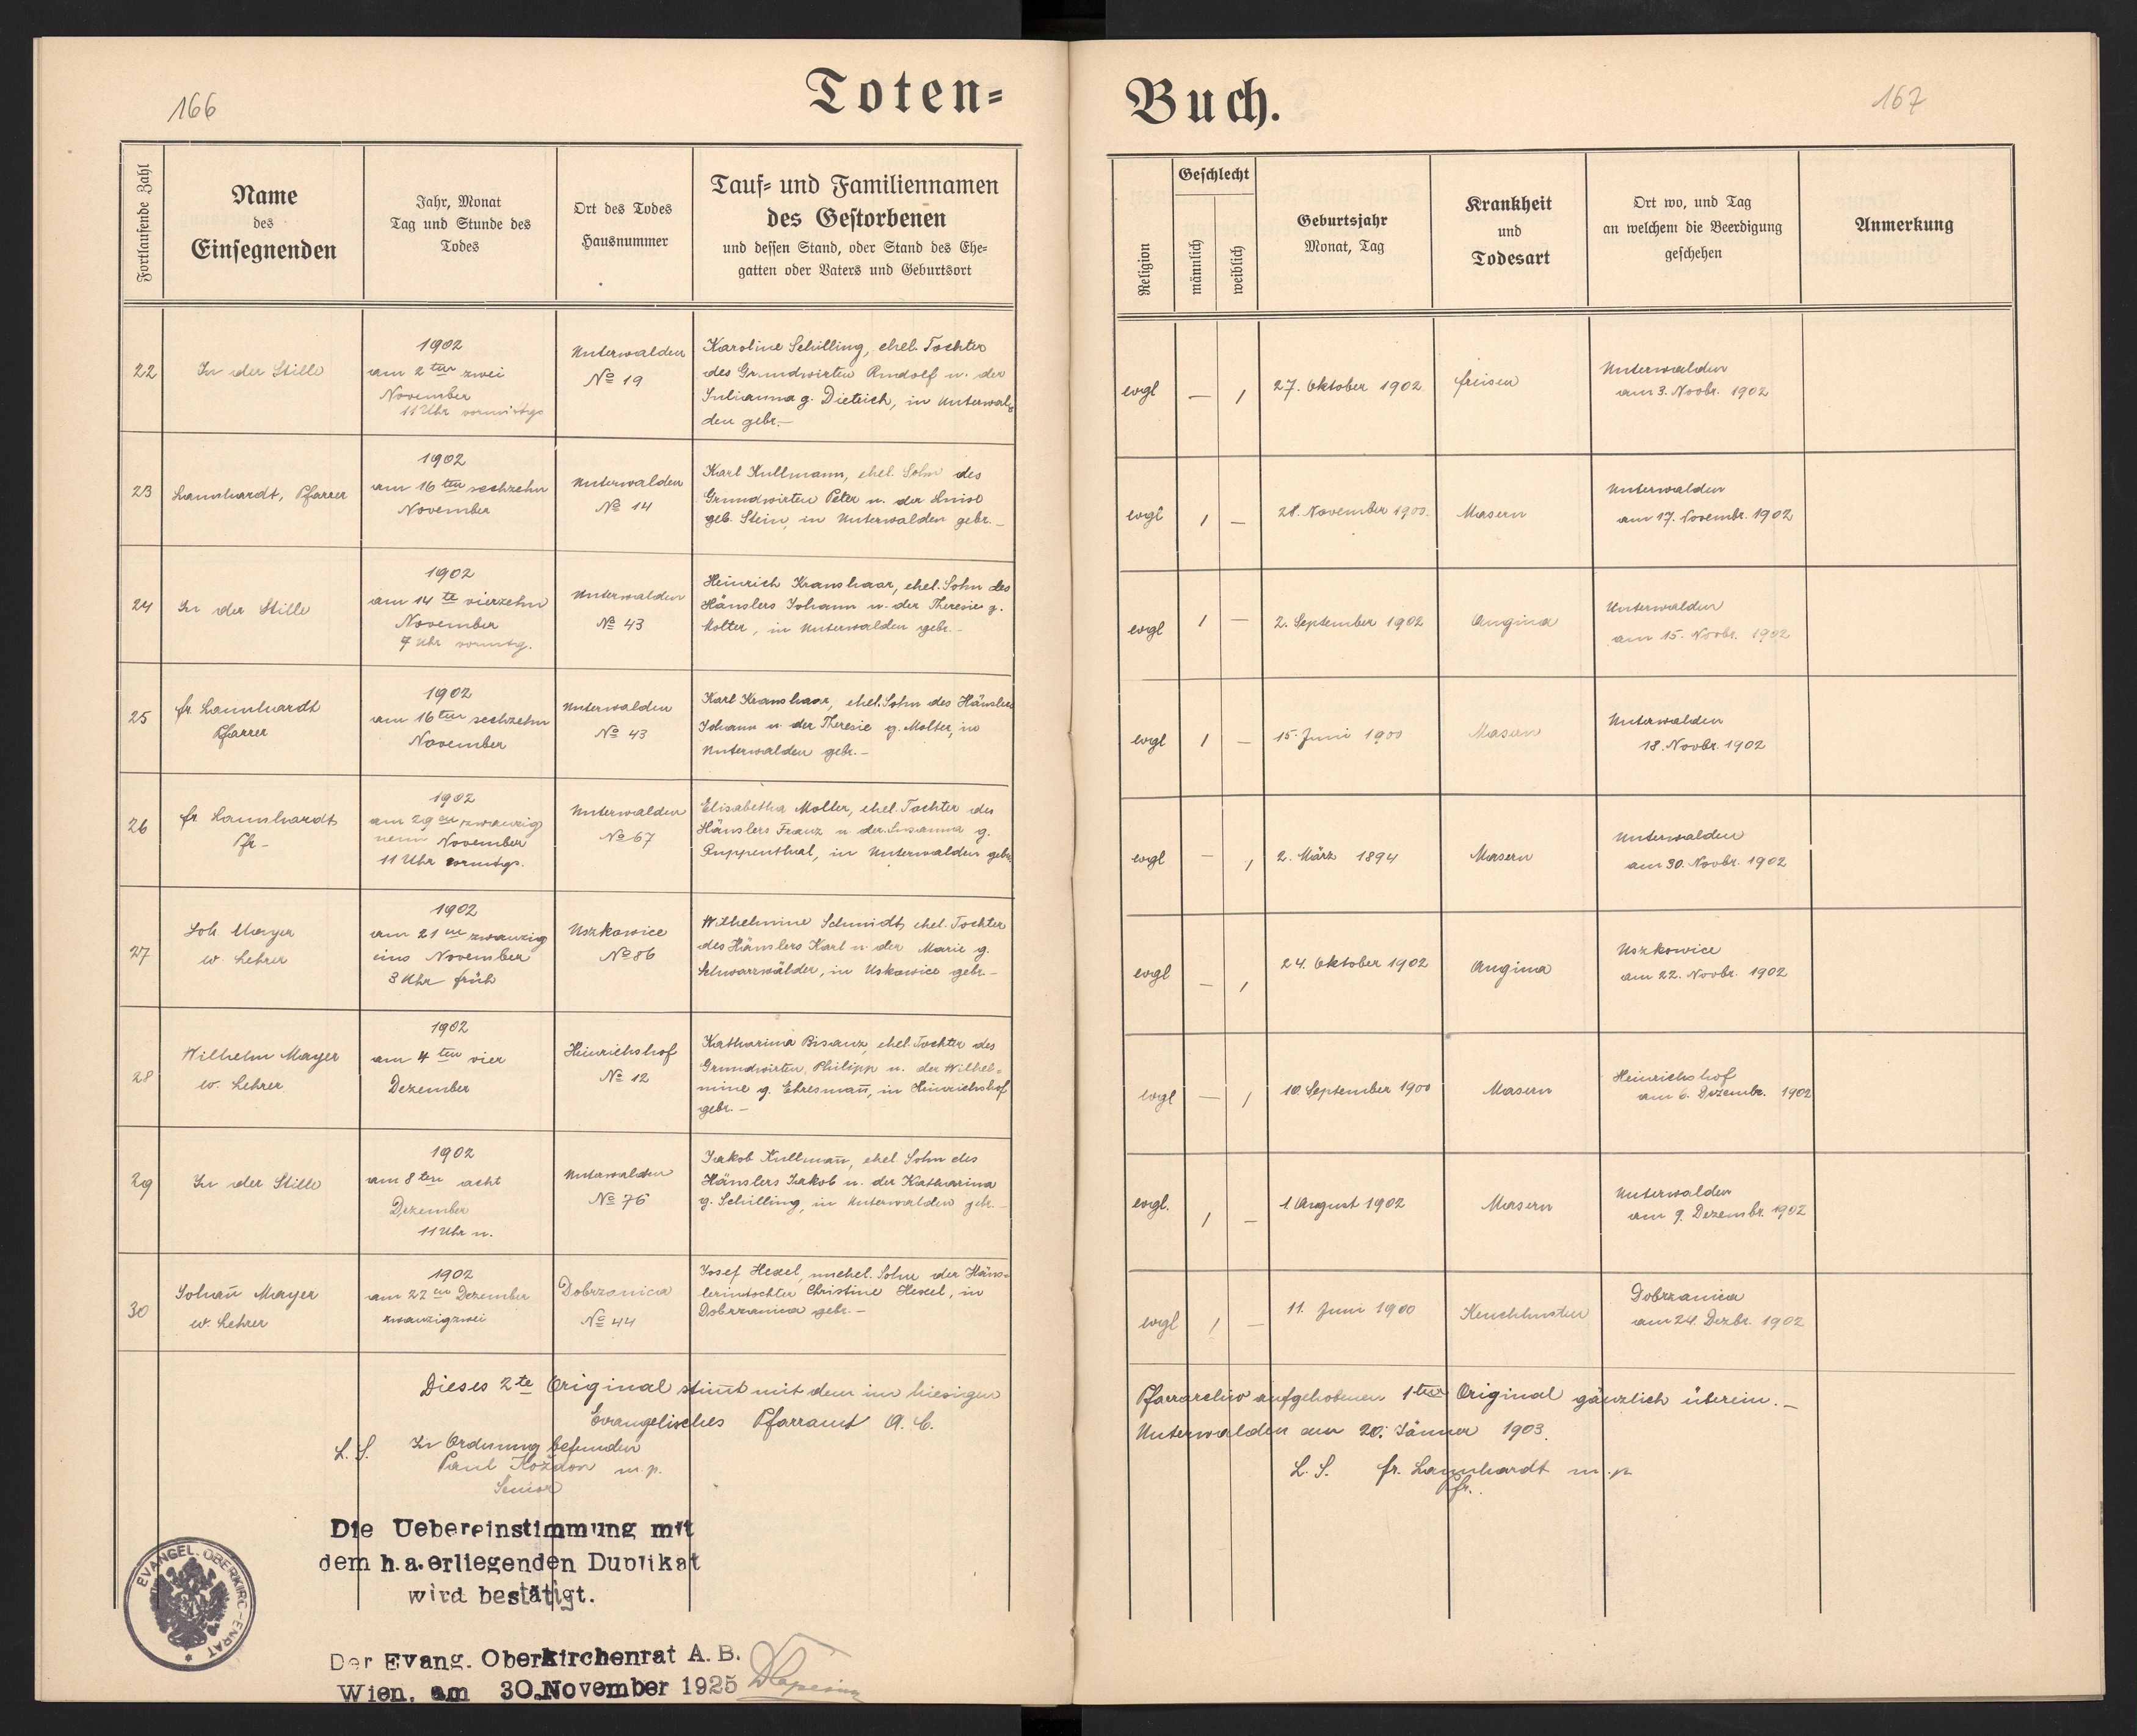 166
Toten=
Fortlaufende Zahl
Name
des
Einsegnenden
Jahr, Monat
Tag und Stunde des
Todes
Ort des Todes
Hausnummer
Tauf= und Familiennamen
des Gestorbenen
und dessen Stand, oder Stand des Ehe=
gatten oder Vaters und Geburtsort
22
In der Stille
1902
am 2ten zwei
November
11 Uhr vormittgs
Unterwalden
No 19
Karoline Schilling, ehel. Tochter
des Grundwirten Rudolf u. der
Julianna g. Dietrich, in Unterwal=
den gebr.—
23
Launhardt, Pfarrer
1902
am 16ten sechzehn
November
Unterwalden
No 14
Karl Kullmann, ehel. Sohn des
Grundwirten Peter u. der Luise
geb. Stein, in Unterwalden gebr.—
24
In der Stille
1902
am 14te vierzehn
November
7 Uhr vormtg.
Unterwalden
No 43
Heinrich Kranshaar, ehel. Sohn des
Häuslers Johann u. der Theresie g.
Molter, in Unterwalden gebr.—
25
fr. Launhardt
Pfarrer
1902
am 16ten sechzehn
November
Unterwalden
No 43
Karl Kranshaar, ehel. Sohn des Häuslers
Johann u. der Theresie g. Molter, in
Unterwalden gebr.—
26
fr Launhardt
Pfr—
1902
am 29en zwanzig
neun November
11 Uhr vormtgs.
Unterwalden
No 67
Elisabetha Molter, ehel. Tochter des
Häuslers Franz u. der Susanna g.
Ruppenthal, in Unterwalden gebr.
27
Joh Mayer
w. Lehrer
1902
am 21en zwanzig
eins November
3 Uhr früh
Uszkowice
No 86
Wilhelmine Schmidt, ehel. Tochter
des Häuslers Karl u. der Marie g.
Schwarzwälder, in Uskowice gebr.—
28
Wilhelm Mayer
w. Lehrer
1902
am 4ten vier
Dezember
Heinrichshof
No 12
Katharina Bisanz, ehel. Tochter des
Grundwirten Philipp u. der Wilhel=
mine g. Ehresmañ, in Heinrichshof
gebr.—
29
In der Stille
1902
am 8ten acht
Dezember
11 Uhr n.
Unterwalden
No 76
Jakob Kullmañ, ehel. Sohn des
Häuslers Jakob u. der Katharina
g. Schilling, in Unterwalden gebr.—
30
Johañ Mayer
w. Lehrer
1902
am 22en Dezember
zwanzigzwei
Dobrzanica
No 44
Josef Hexel, unehel. Sohn der Häus=
lerinstochter Christine Hexel, in
Dobrzanica gebr.—
Dieses 2te Original stim̄t mit dem im hiesigen
Evangelisches Pfarramt A. C.
L. S. In Ordnung befunden
Paul Koždon m. p.
Senior
Die Uebereinstimmung mit
dem h.a. erliegenden Duplikat
wird bestätigt.
EVANGEL. OBERKIRCHENRAT
Der Evang. Oberkirchenrat A. B.
Wien, am 30. November 1925
Buch.
167
Religion
Geschlecht
männlich
weiblich
Geburtsjahr
Monat, Tag
Krankheit
und
Todesart
Ort wo, und Tag
an welchem die Beerdigung
geschehen
Anmerkung
evgl — / 27. Oktober 1902 freisen
Unterwalden
am 3. Novbr. 1902
evgl / — 28. November 1900. Masern
Unterwalden
am 17. Novembr. 1902
evgl / — 2. September 1902 Angina
Unterwalden
am 15. Novbr. 1902
evgl / — 15. Juni 1900 Masern
Unterwalden
18. Novbr. 1902
evgl — / 2. März 1894 Masern
Unterwalden
am 30. Novbr. 1902
evgl — / 24. Oktober 1902 Angina
Uszkowice
am 22. Novbr. 1902
evgl — / 10. September 1900 Masern
Heinrichshof
am 6. Dezembr. 1902
evgl. / — 1. August 1902 Masern
Unterwalden
am 9. Dezembr. 1902
evgl / — 11. Juni 1900 Keuchhusten
Dobrzanica
am 24. Dezbr. 1902
Pfarrarchiv aufgehobenen 1ten Original gänzlich überein.—
Unterwalden am 20. Jänner 1903.
L. S. fr. Launhardt m. p
Pfr.